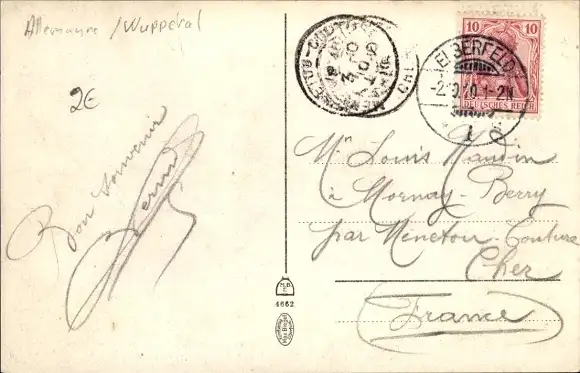 Allemagne /Wuppertal
2€
Bon souvenir
10 10
DEUTSCHES REICH
ELBERFELD
-2.10.10.1-2N
CHER
Mr Louis
à Mornay-Berry
par Menetou-Couture
Cher
France
4662